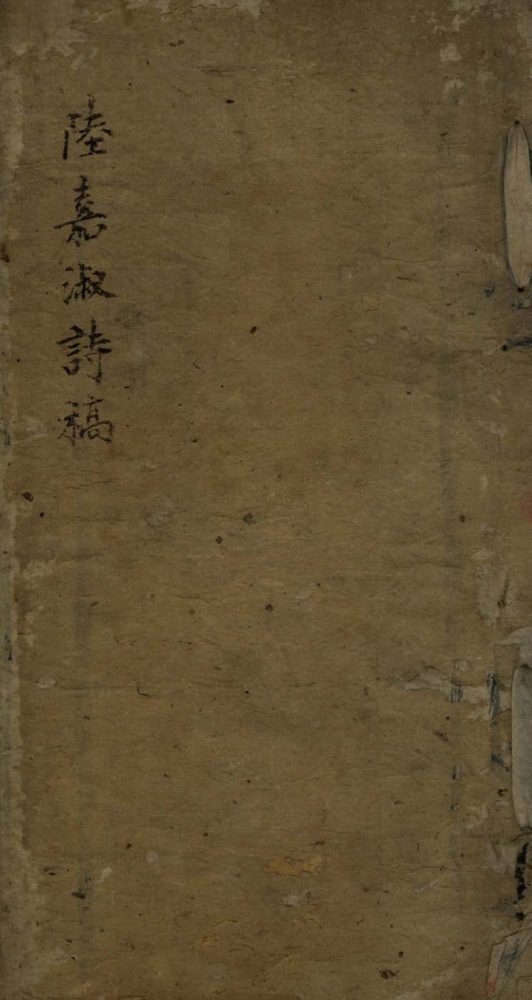 陸嘉淑詩稿